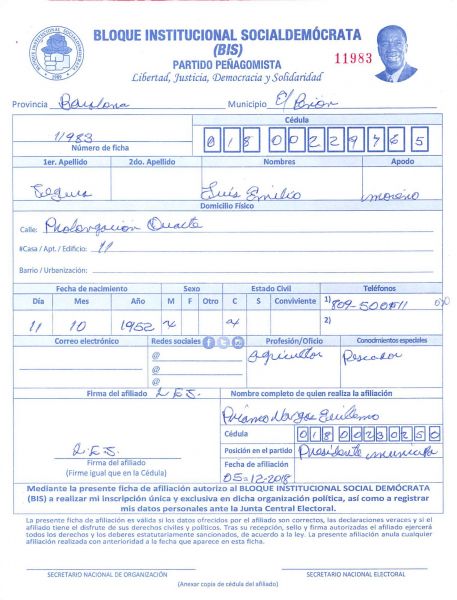 BLOQUE INSTITUCIONAL SOCIALDEMÓCRATA
(BIS)
PARTIDO PEÑAGOMISTA
Libertad, Justicia, Democracia y Solidaridad
11983
BLOQUE INSTITUCIONAL SOCIALDEMOCRATA
Provincia Barahona Municipio El Peñon
Cédula
11983 018 0022976 5
Número de ficha
1er. Apellido 2do. Apellido Nombres Apodo
Segura Luis Emilio moreno
Domicilio Físico
Calle: Prolongación Duarte
#Casa / Apt. / Edificio: 11
Barrio / Urbanización:
Fecha de nacimiento Sexo Estado Civil Teléfonos
Día Mes Año M F Otro C S Conviviente 1) 809-500
11 10 1952 x x 2)
Correo electrónico Redes sociales Profesión/Oficio Conocimientos especiales
@ agricultor Pescador
@
@
Firma del afiliado L.E.S. Nombre completo de quien realiza la afiliación
Vargas Guillermo
Cédula
018 0023025 0
L.E.S. Posición en el partido Presidente municipal
Firma del afiliado Fecha de afiliación
(Firme igual que en la Cédula) 05-12-2018
Mediante la presente ficha de afiliación autorizo al BLOQUE INSTITUCIONAL SOCIAL DEMÓCRATA
(BIS) a realizar mi inscripción única y exclusiva en dicha organización política, así como a registrar
mis datos personales ante la Junta Central Electoral.
La presente ficha de afiliación es válida si los datos ofrecidos por el afiliado son correctos, las declaraciones veraces y si el
afiliado tiene el disfrute de sus derechos civiles y políticos. Tras su recepción, sello y firma autorizada el afiliado ejercerá
todos los derechos y los deberes estatutariamente sancionados, de acuerdo a la ley. La presente afiliación anula cualquier
afiliación realizada con anterioridad a la fecha que aparece en esta ficha.
SECRETARIO NACIONAL DE ORGANIZACIÓN SECRETARIO NACIONAL ELECTORAL
(Anexar copia de cédula del afiliado)